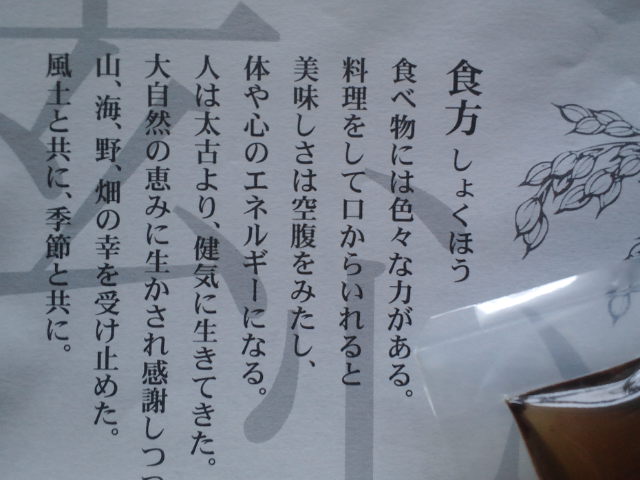 食方 しょくほう
食べ物には色々な力がある。
料理をして口からいれると
美味しさは空腹をみたし、
体や心のエネルギーになる。
人は太古より、健気に生きてきた。
大自然の恵みに生かされ感謝しつつ
山、海、野、畑の幸を受け止めた。
風土と共に、季節と共に。